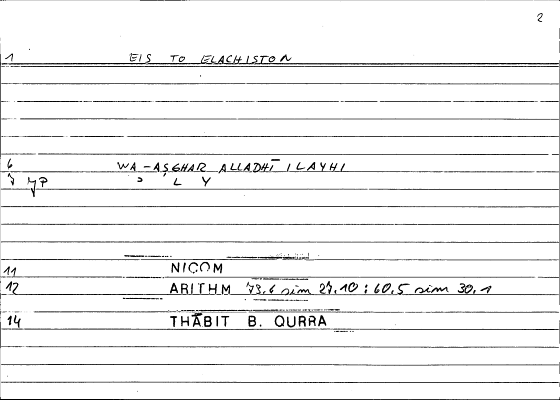 2
1 EIS TO ELACHISTON
6 WA-AṢGHAR ALLADHĪ ILAYHI
L Y
11 NICOM
12 ARITHM 73,6 sim 27,10 : 60,5 sim 30,1
14 THĀBIT B. QURRA